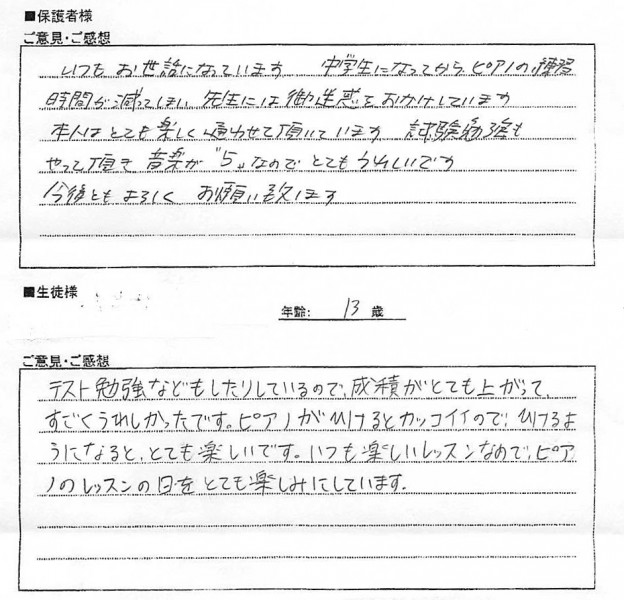 ■保護者様
ご意見・ご感想
いつも お世話になっています 中学生になってから ピアノの 練習
時間が 減ってしまい 先生には 御迷惑を おかけしています
本人は とても 楽しく 通わせて 頂いています 試験勉強も
やって 頂き 音楽が "5" なので とても うれしいです
今後とも よろしく お願い致します
■生徒様
年齢: 13 歳
ご意見・ご感想
テスト勉強などもしたりしているので、成積がとても上がって、
すごくうれしかったです。ピアノがひけるとカッコイイので、ひけるよ
うになると、とても楽しいです。いつも楽しいレッスンなので、ピア
ノのレッスンの日をとても楽しみにしています。